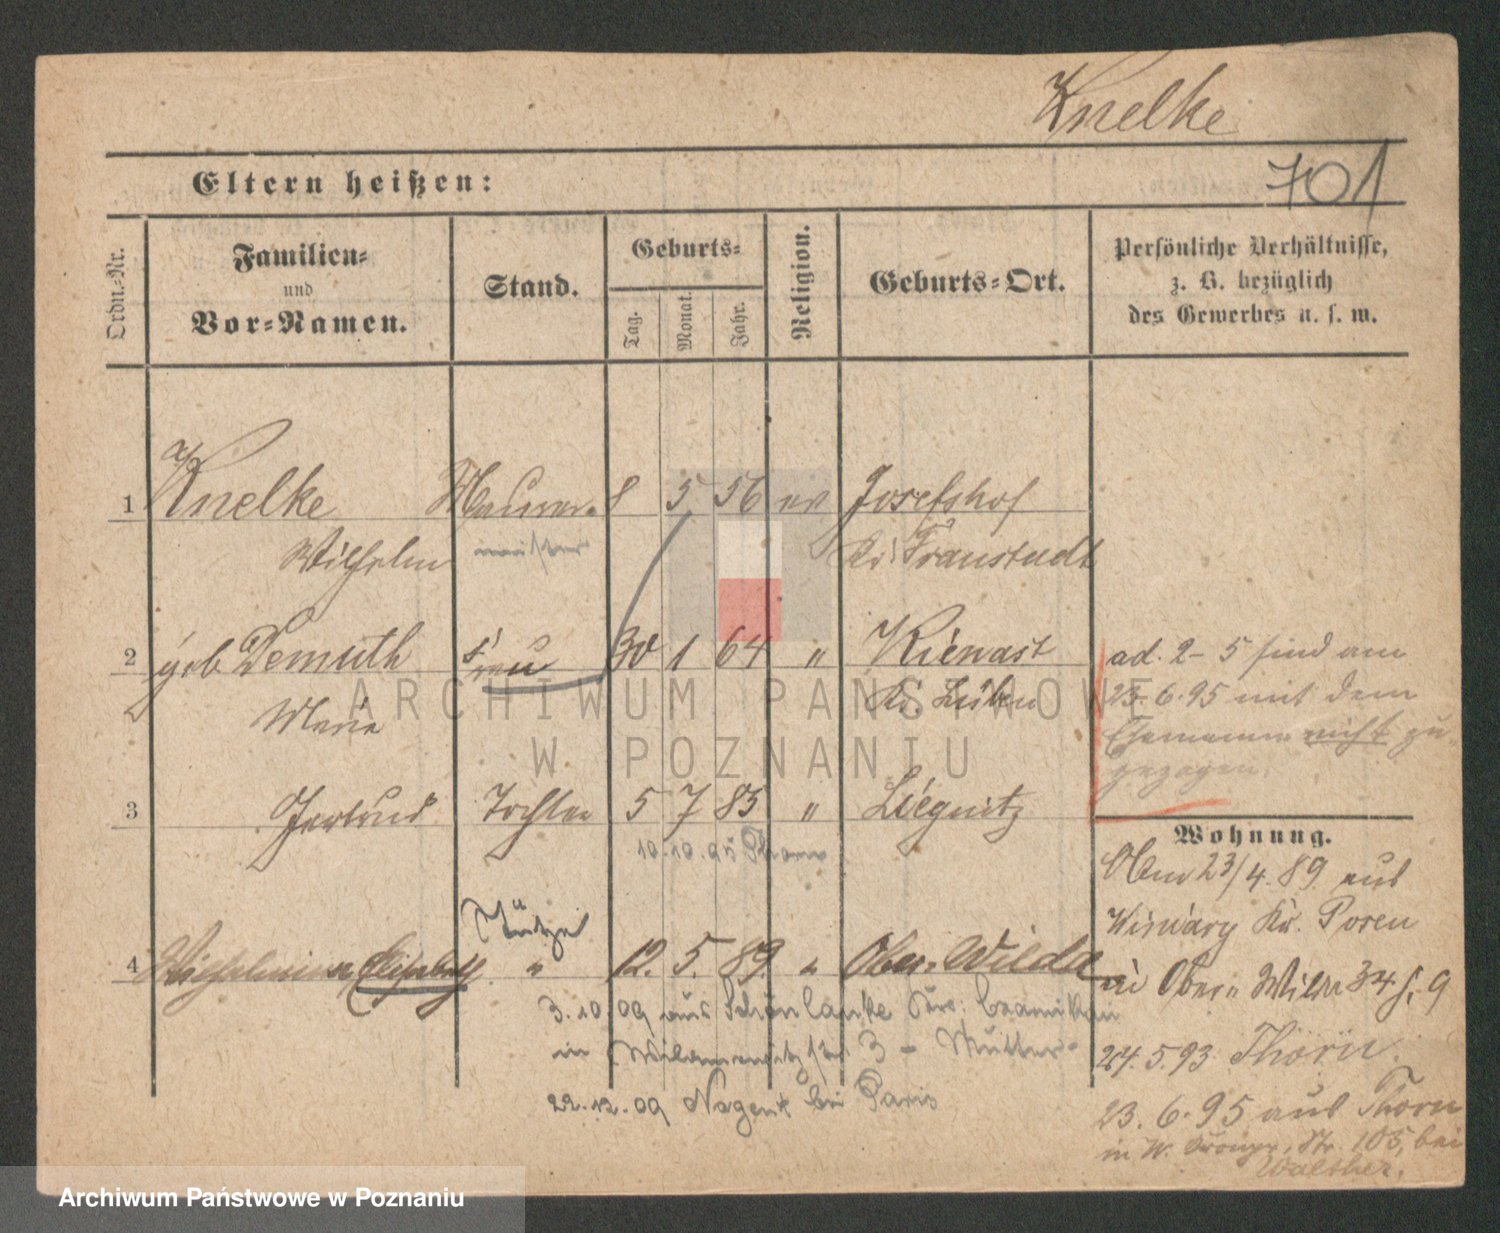 Knelke
701
Eltern heißen:
Ordn.-Nr.
Familien-
und
Vor-Namen.
Stand.
Geburts-
Tag.
Monat.
Jahr.
Religion.
Geburts-Ort.
Persönliche Verhältnisse,
z. B. bezüglich
des Gewerbes u. s. w.
1 Knelke Maurer- 8 5 56 ev Josefshof
Wilhelm meister Kr. Fraustadt
2 geb Demuth Frau 30 1 64 " Kienast
Marie Kr. Lüben
ad. 2-5 sind am
23.6.95 mit dem
Ehemann nicht zu
gezogen.
3 Gertrud Tochter 5 7 85 " Liegnitz
10.10.95 Thorn
Wohnung.
23/4.89 aus
Kr. Posen
in Ober Wilda 34
24.5.93 Thorn.
23.6.95 aus Thorn
in W. Str. 105, bei
Walther.
Stütze
4 Wilhelmine Elisabeth " 12. 5. 89. " Ober-Wilda
3.10.09 aus Schönlanke
in 3 - Mutter-
22.12.09 Nogent bei Paris
ARCHIWUM PAŃSTWOWE
W POZNANIU
Archiwum Państwowe w Poznaniu